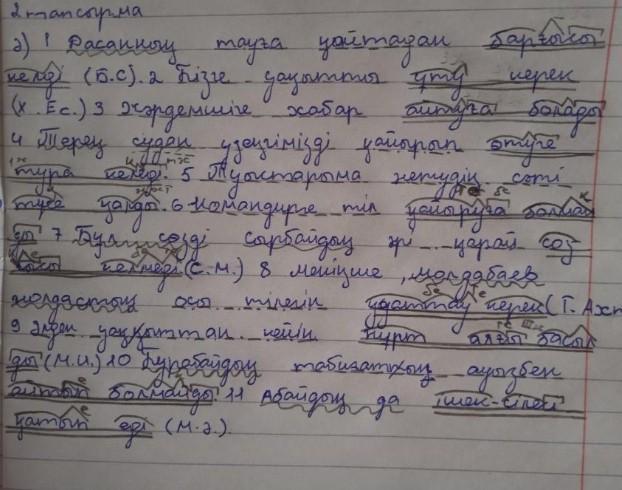 2 тапсырма
ә) 1 Дасанның тауға қайтадан барғысы
келді (Б.С). 2 Бізге уақытты ұту керек
(Х. Ес.) 3 Жәрдемшіге хабар айтуға болады
4 Терең судан үзеңгімізді қайырып өтуге
тура келеді. 5 Туыстарыма жетудің сәті
түсе қалды. 6 Командирге тіл қайыруға болмай
ды 7 Бұл сөзді сырбайдың әрі қарай соз
ғысы келмеді (С.М.) 8 меніңше, молдабаев
жолдастың осы тілегін қуаттау керек (Ғ. Ахт
9 әлден уақыттан кейін құрт алғы басыл
ды (М.И.) 10 Бурабайдың табиғатның ауызбен
айтып болмайды 11 Абайдың да ішек-сілесі
қатып еді (М.Ә.).